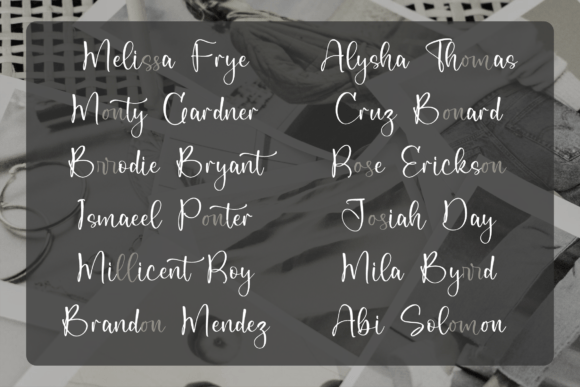 Melissa Frye
Monty Gardner
Brrodie Bryant
Ismaeel Ponter
Millicent Roy
Brandon Mendez
Alysha Thomas
Cruz Bonard
Rose Erickson
Josiah Day
Mila Byrrd
Abi Solomon